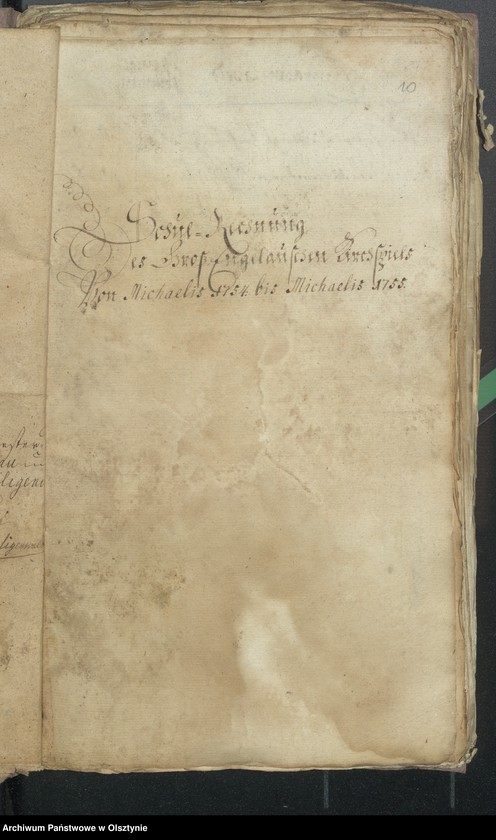 10
Schul-Rechnung
des Gros-Engelauschen Kirchspiels
Von Michaelis 1754. bis Michaelis 1755.
Archiwum Państwowe w Olsztynie